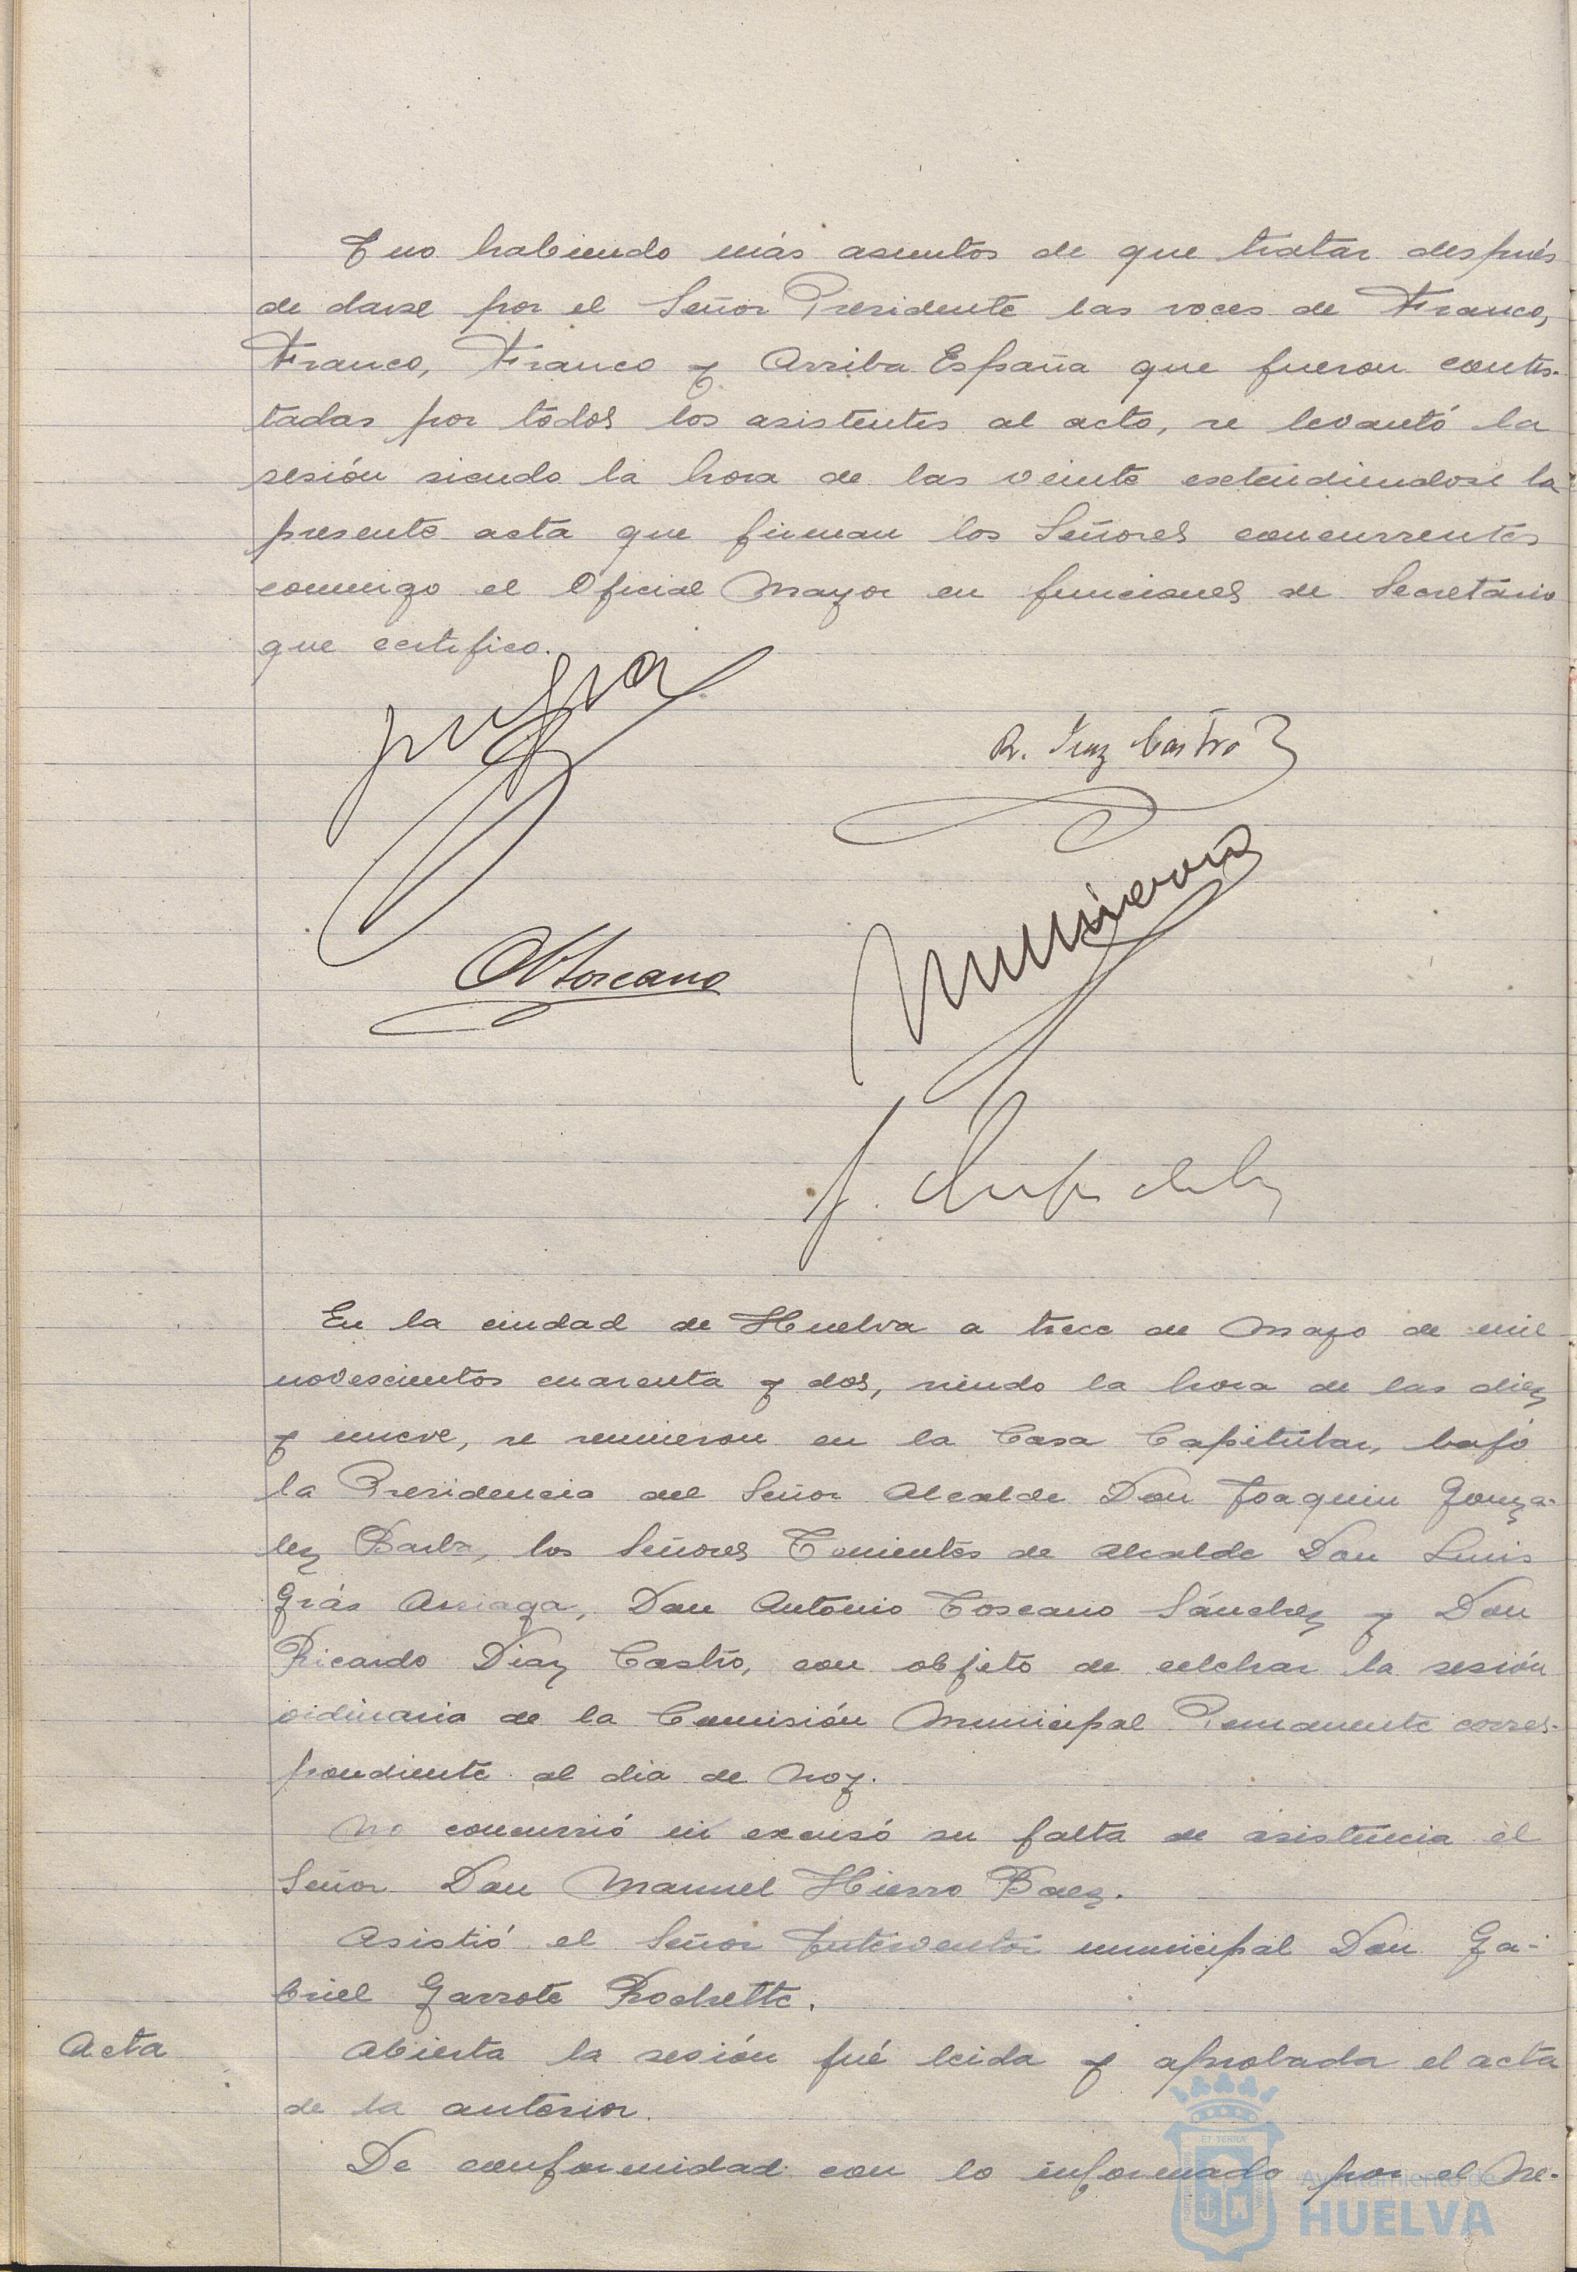 Y no habiendo más asuntos de que tratar después
de darse por el Señor Presidente las voces de Franco,
Franco, Franco y Arriba España que fueron contes-
tadas por todos los asistentes al acto, se levantó la
sesión siendo la hora de las veinte extendiendose la
presente acta que firman los Señores concurrentes
conmigo el Oficial Mayor en funciones de Secretario
que certifico.
R. Diaz Castro
Toscano
En la ciudad de Huelva a trece de Mayo de mil
novescientos cuarenta y dos, siendo la hora de las diez
y nueve, se reunieron en la Casa Capitular, bajo
la Presidencia del Señor Alcalde Don Joaquin Gonza-
lez Barba, los Señores Tenientes de Alcalde Don Luis
Grás Arriaga, Don Antonio Toscano Sánchez y Don
Ricardo Diaz Castro, con objeto de celebrar la sesión
ordinaria de la Comisión Municipal Permanente corres-
pondiente al dia de hoy.
No concurrió ni excusó su falta de asistencia el
Señor Don Manuel Hierro Baez.
Asistió el Señor Interventor municipal Don Ga-
briel Garrote Rochette.
Acta
Abierta la sesión fué leida y aprobada el acta
de la anterior.
De conformidad con lo informado por el Ne-
ET TERRA
Ayuntamiento de
HUELVA